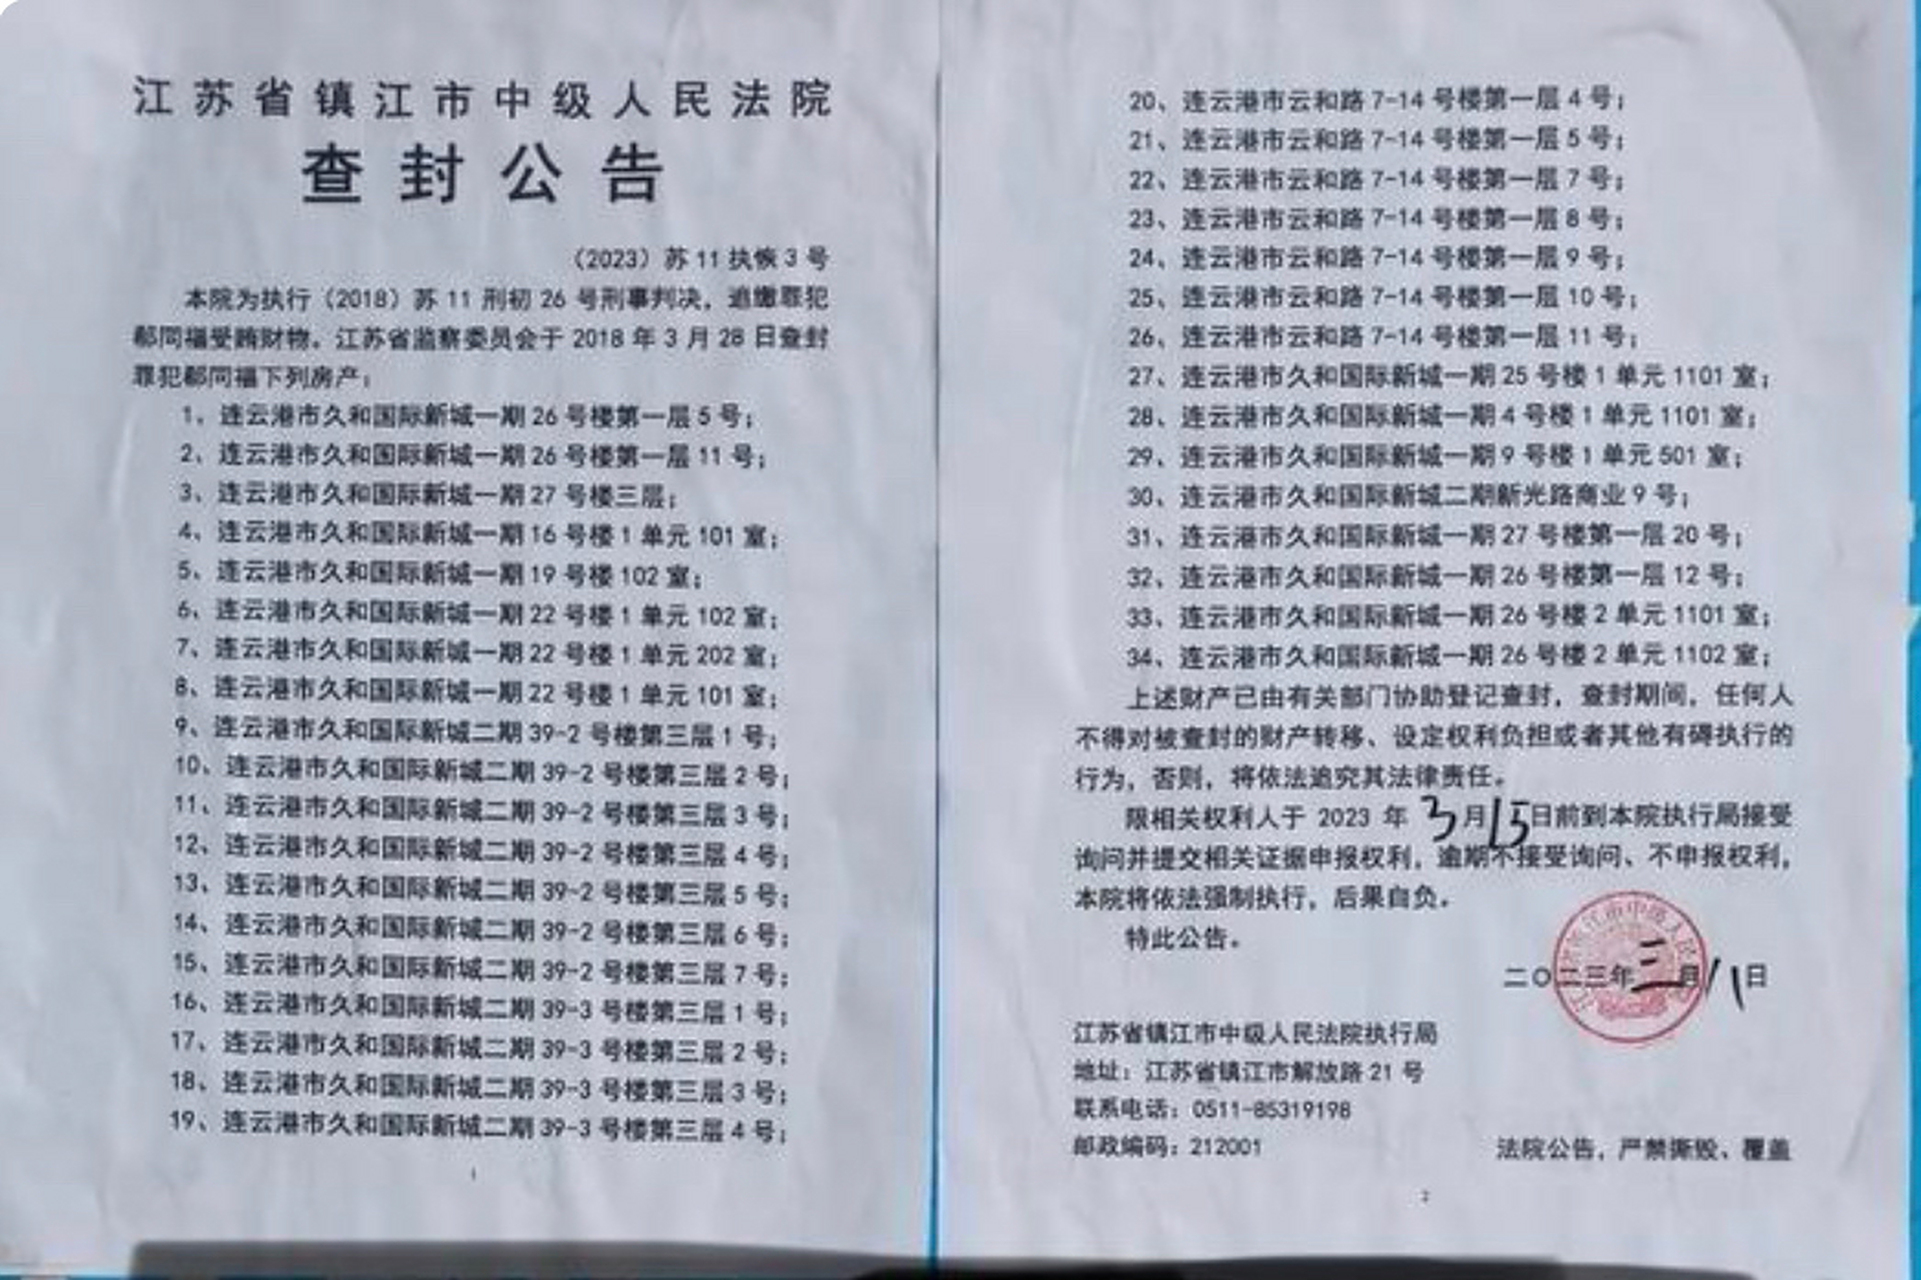 江苏省镇江市中级人民法院
查封公告
（2023）苏11执恢3号
本院为执行（2018）苏11刑初26号刑事判决，追缴罪犯
郗同福受贿财物。江苏省监察委员会于2018年3月28日查封
罪犯郗同福下列房产：
1、连云港市久和国际新城一期26号楼第一层5号；
2、连云港市久和国际新城一期26号楼第一层11号；
3、连云港市久和国际新城一期27号楼三层；
4、连云港市久和国际新城一期16号楼1单元101室；
5、连云港市久和国际新城一期19号楼102室；
6、连云港市久和国际新城一期22号楼1单元102室；
7、连云港市久和国际新城一期22号楼1单元202室；
8、连云港市久和国际新城一期22号楼1单元101室；
9、连云港市久和国际新城二期39-2号楼第三层1号；
10、连云港市久和国际新城二期39-2号楼第三层2号；
11、连云港市久和国际新城二期39-2号楼第三层3号；
12、连云港市久和国际新城二期39-2号楼第三层4号；
13、连云港市久和国际新城二期39-2号楼第三层5号；
14、连云港市久和国际新城二期39-2号楼第三层6号；
15、连云港市久和国际新城二期39-2号楼第三层7号；
16、连云港市久和国际新城二期39-3号楼第三层1号；
17、连云港市久和国际新城二期39-3号楼第三层2号；
18、连云港市久和国际新城二期39-3号楼第三层3号；
19、连云港市久和国际新城二期39-3号楼第三层4号；
1
20、连云港市云和路7-14号楼第一层4号；
21、连云港市云和路7-14号楼第一层5号；
22、连云港市云和路7-14号楼第一层7号；
23、连云港市云和路7-14号楼第一层8号；
24、连云港市云和路7-14号楼第一层9号；
25、连云港市云和路7-14号楼第一层10号；
26、连云港市云和路7-14号楼第一层11号；
27、连云港市久和国际新城一期25号楼1单元1101室；
28、连云港市久和国际新城一期4号楼1单元1101室；
29、连云港市久和国际新城一期9号楼1单元501室；
30、连云港市久和国际新城二期新光路商业9号；
31、连云港市久和国际新城一期27号楼第一层20号；
32、连云港市久和国际新城一期26号楼第一层12号；
33、连云港市久和国际新城一期26号楼2单元1101室；
34、连云港市久和国际新城一期26号楼2单元1102室；
上述财产已由有关部门协助登记查封，查封期间，任何人
不得对被查封的财产转移、设定权利负担或者其他有碍执行的
行为，否则，将依法追究其法律责任。
限相关权利人于2023年3月15日前到本院执行局接受
询问并提交相关证据申报权利，逾期不接受询问、不申报权利，
本院将依法强制执行，后果自负。
特此公告。
二〇二三年三月八日
江苏省镇江市中级人民法院执行局
地址：江苏省镇江市解放路21号
联系电话：0511-85319198
邮政编码：212001
法院公告，严禁撕毁、覆盖
2